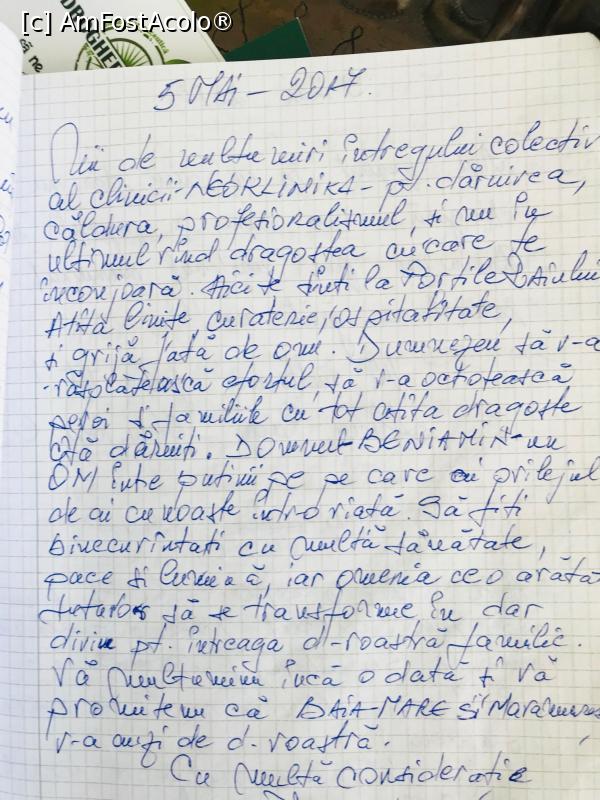 [c] AmFostAcolo®
5 MAI - 2017.
Mii de mulțumiri întregului colectiv
al clinicii - NEOKLINIKA - pt. dăruirea,
căldura, profesionalismul, și nu în
ultimul rînd dragostea cu care te
înconjoară. Aici te simți la Porțile Raiului
Atîta liniște, curatenie, ospitalitate,
și grijă față de om. Dumnezeu să v-a
răsplătească efortul, să v-a ocrotească
pe voi și familiile cu tot atîta dragoste
cîtă dăruiți. Domnul BENIAMIN - un
OM între puținii pe care ai prilejul
de ai cunoaște într-o viață. Să fiți
binecuvîntați cu multă sănătate,
pace și lumină, iar omenia ce o arătați
tuturor să se transforme în dar
divin pt. întreaga d-voastră familie.
Vă mulțumim încă o dată și vă
promitem că BAIA-MARE și Maramureș
v-a auzi de d. voastră.
Cu multă considerație